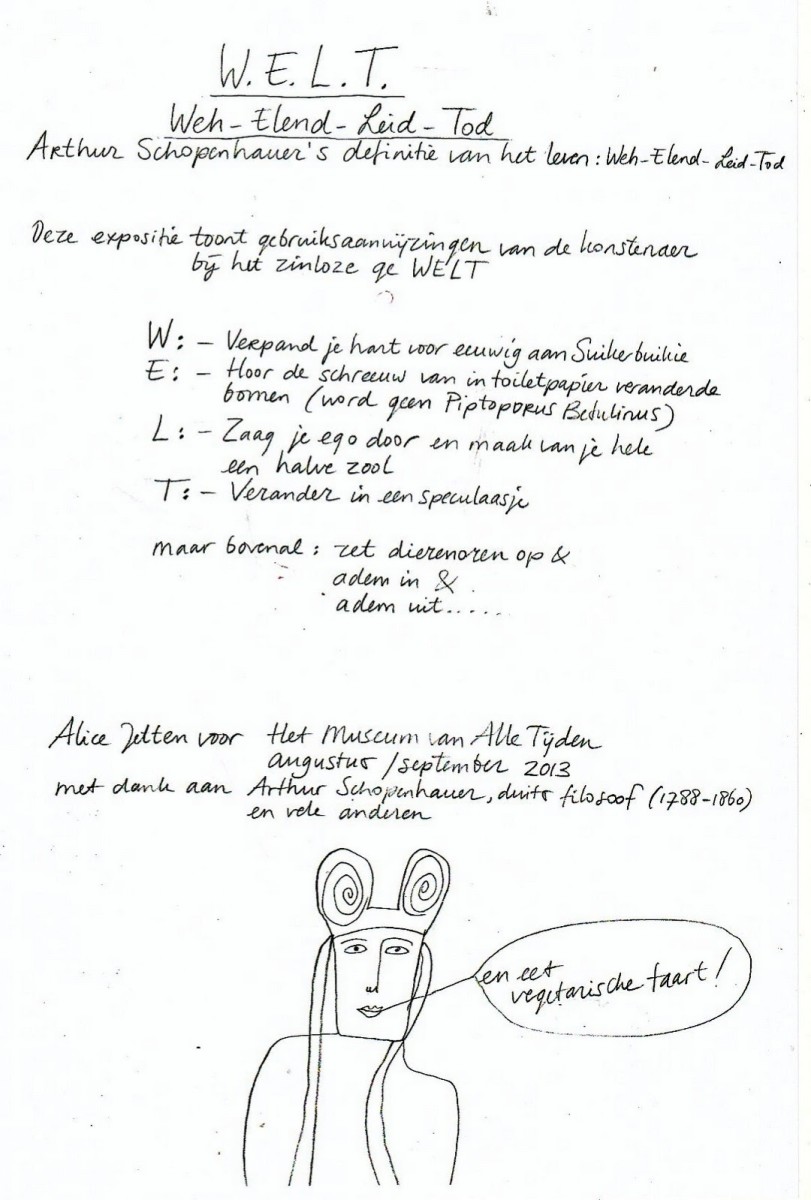 W.E.L.T.
Weh-Elend-Leid-Tod
Arthur Schopenhauer's definitie van het leven: Weh-Elend-Leid-Tod
Deze expositie toont gebruiksaanwijzingen van de konstenaer
bij het zinloze ge WELT
W: - Verpand je hart voor eeuwig aan Suikerbuikie
E: - Hoor de schreeuw van in toiletpapier veranderde
bomen (word geen Piptoporus Betulinus)
L: - Zaag je ego door en maak van je hele
een halve zool
T: - Verander in een speculaasje
maar bovenal: zet dierenoren op &
adem in &
adem uit.....
Alice Jetten voor Het Museum van Alle Tijden
augustus/september 2013
met dank aan Arthur Schopenhauer, duits filosoof (1788-1860)
en vele anderen
en eet
vegetarische taart!